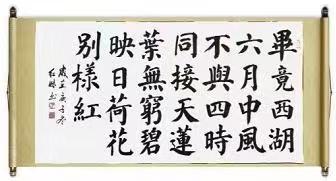 畢竟西湖
六月中風
不與四時
同接天蓮
葉無窮碧
映日荷花
別樣紅
庚子冬